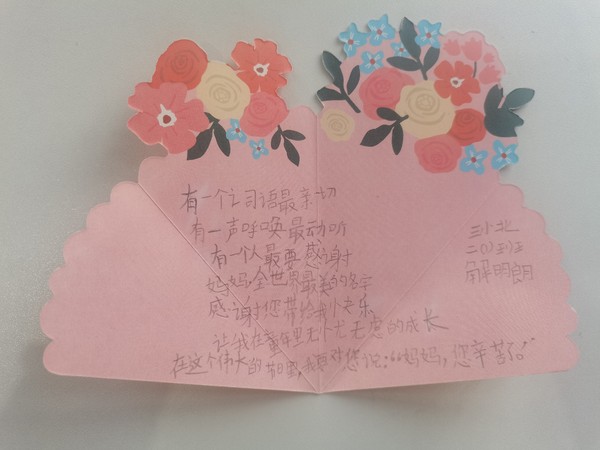 有一个词语最亲切
有一声呼唤最动听
有一个人最要感谢
妈妈·全世界最美的名字
感谢您带给我快乐
让我在童年里无忧无虑的成长
在这个伟大的节日里,我要对您说:“妈妈,您辛苦了!”
三小北
解明朗